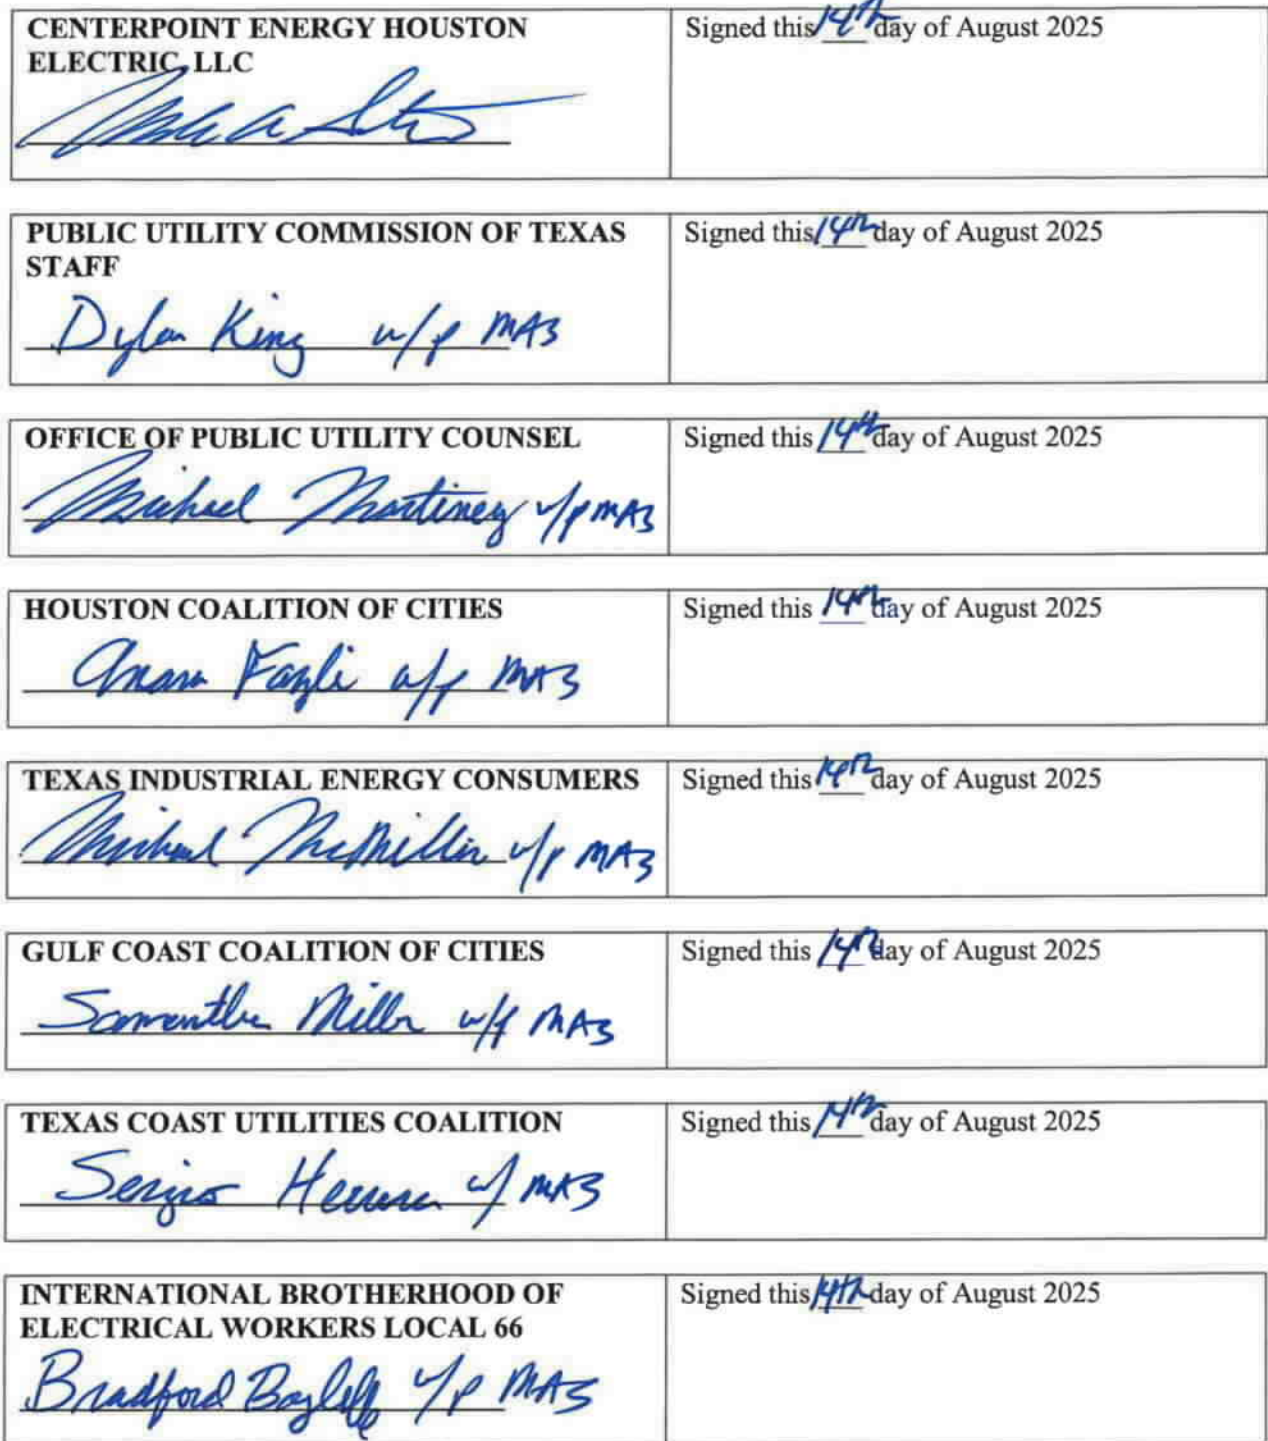 CENTERPOINT ENERGY HOUSTON
ELECTRIC, LLC
Signed this 14th day of August 2025
PUBLIC UTILITY COMMISSION OF TEXAS
STAFF
Dylan King w/p MAS
Signed this 14th day of August 2025
OFFICE OF PUBLIC UTILITY COUNSEL
Michael Martinez w/p MAS
Signed this 14th day of August 2025
HOUSTON COALITION OF CITIES
Fazli w/p MAS
Signed this 14th day of August 2025
TEXAS INDUSTRIAL ENERGY CONSUMERS
Michael McMillin w/p MAS
Signed this 14th day of August 2025
GULF COAST COALITION OF CITIES
Samantha Miller w/p MAS
Signed this 14th day of August 2025
TEXAS COAST UTILITIES COALITION
Sergio Herrera w/ MAS
Signed this 14th day of August 2025
INTERNATIONAL BROTHERHOOD OF
ELECTRICAL WORKERS LOCAL 66
Bradford w/p MAS
Signed this 14th day of August 2025